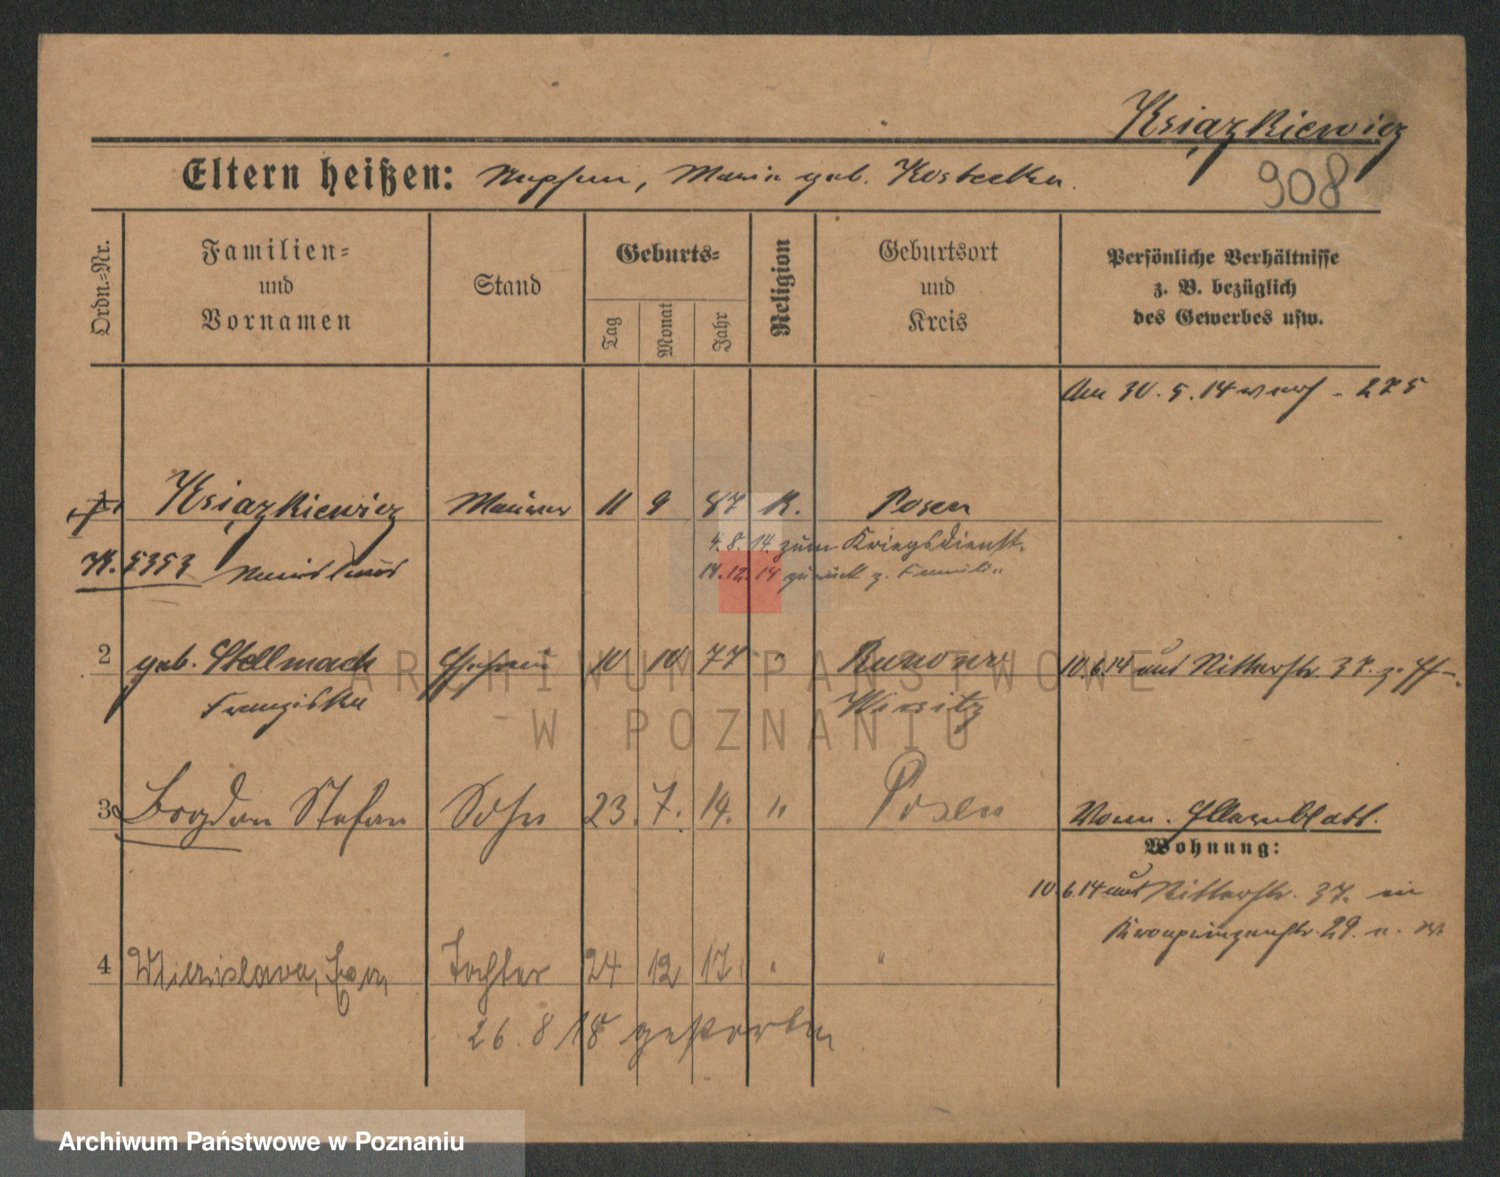 Książkiewicz
908
Eltern heißen: Maria geb. Kostecka.
Ordn.-Nr.
Familien-
und
Vornamen
Stand
Geburts-
Tag
Monat
Jahr
Religion
Geburtsort
und
Kreis
Persönliche Verhältnisse
z. B. bezüglich
des Gewerbes usw.
Am 30. 5. 14 275
1 Książkiewicz Maurer 11 9 87 K. Posen
4. 8. 14. zum Kriegsdienst.
K. 5353
14. 12. 14 zurück z. Familie
2 geb. Stellmach Ehefrau 10 10 77 " 10.6.14 aus Ritterstr. 37. z.
Franziska Wirsitz
3 Bogdan Stefan Sohn 23. 7. 14. " Posen
Wohnung:
10.6.14 aus Ritterstr. 37. in
Kronprinzenstr. 29.
4 Tochter 24 12 17 " "
26. 8 18 gestorben
ARCHIWUM PAŃSTWOWE
W POZNANIU
Archiwum Państwowe w Poznaniu